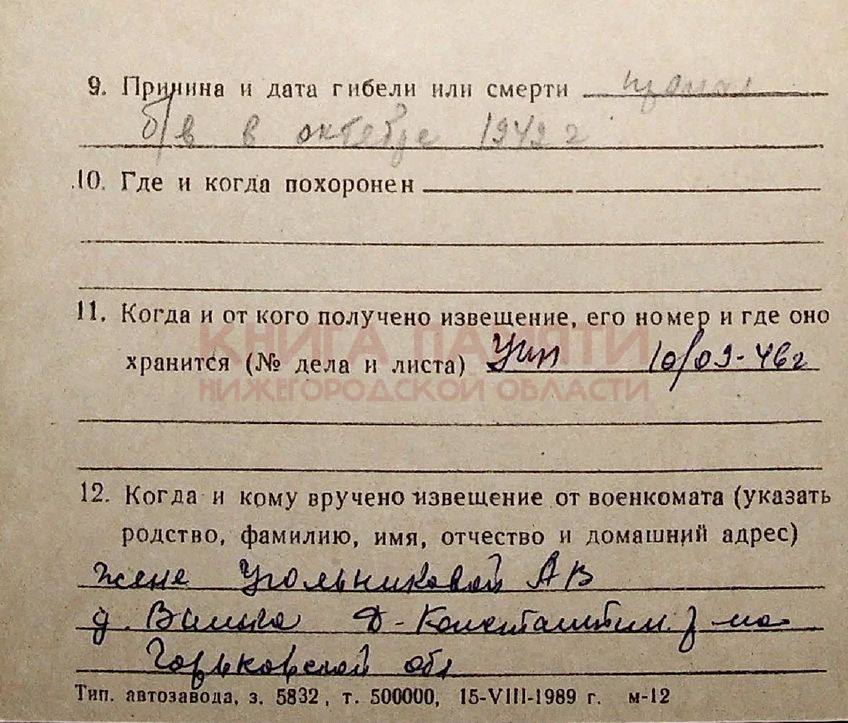 9. Причина и дата гибели или смерти пропал
б/в в октябре 1942 г
10. Где и когда похоронен
11. Когда и от кого получено извещение, его номер и где оно
хранится (№ дела и листа) Уип 10/09-46г
КНИГА ПАМЯТИ
НИЖЕГОРОДСКОЙ ОБЛАСТИ
12. Когда и кому вручено извещение от военкомата (указать
родство, фамилию, имя, отчество и домашний адрес)
жене Угольниковой АВ
д. Д-Константин. р-на
Горьковской обл
Тип. автозавода, з. 5832, т. 500000, 15-VIII-1989 г. м-12